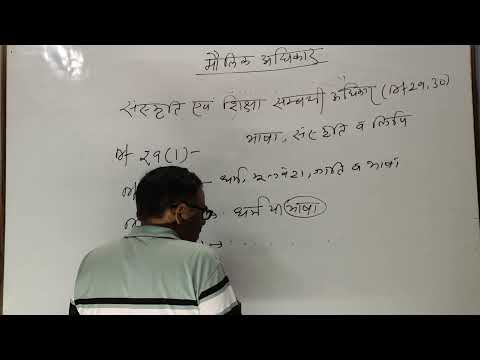 मौलिक अधिकार
संस्कृति एवं शिक्षा सम्बन्धी अधिकार (Art 29, 30)
भाषा, संस्कृति व लिपि
Art 29(1) -
- धर्म, मूलवंश, जाति व भाषा
धर्म या भाषा